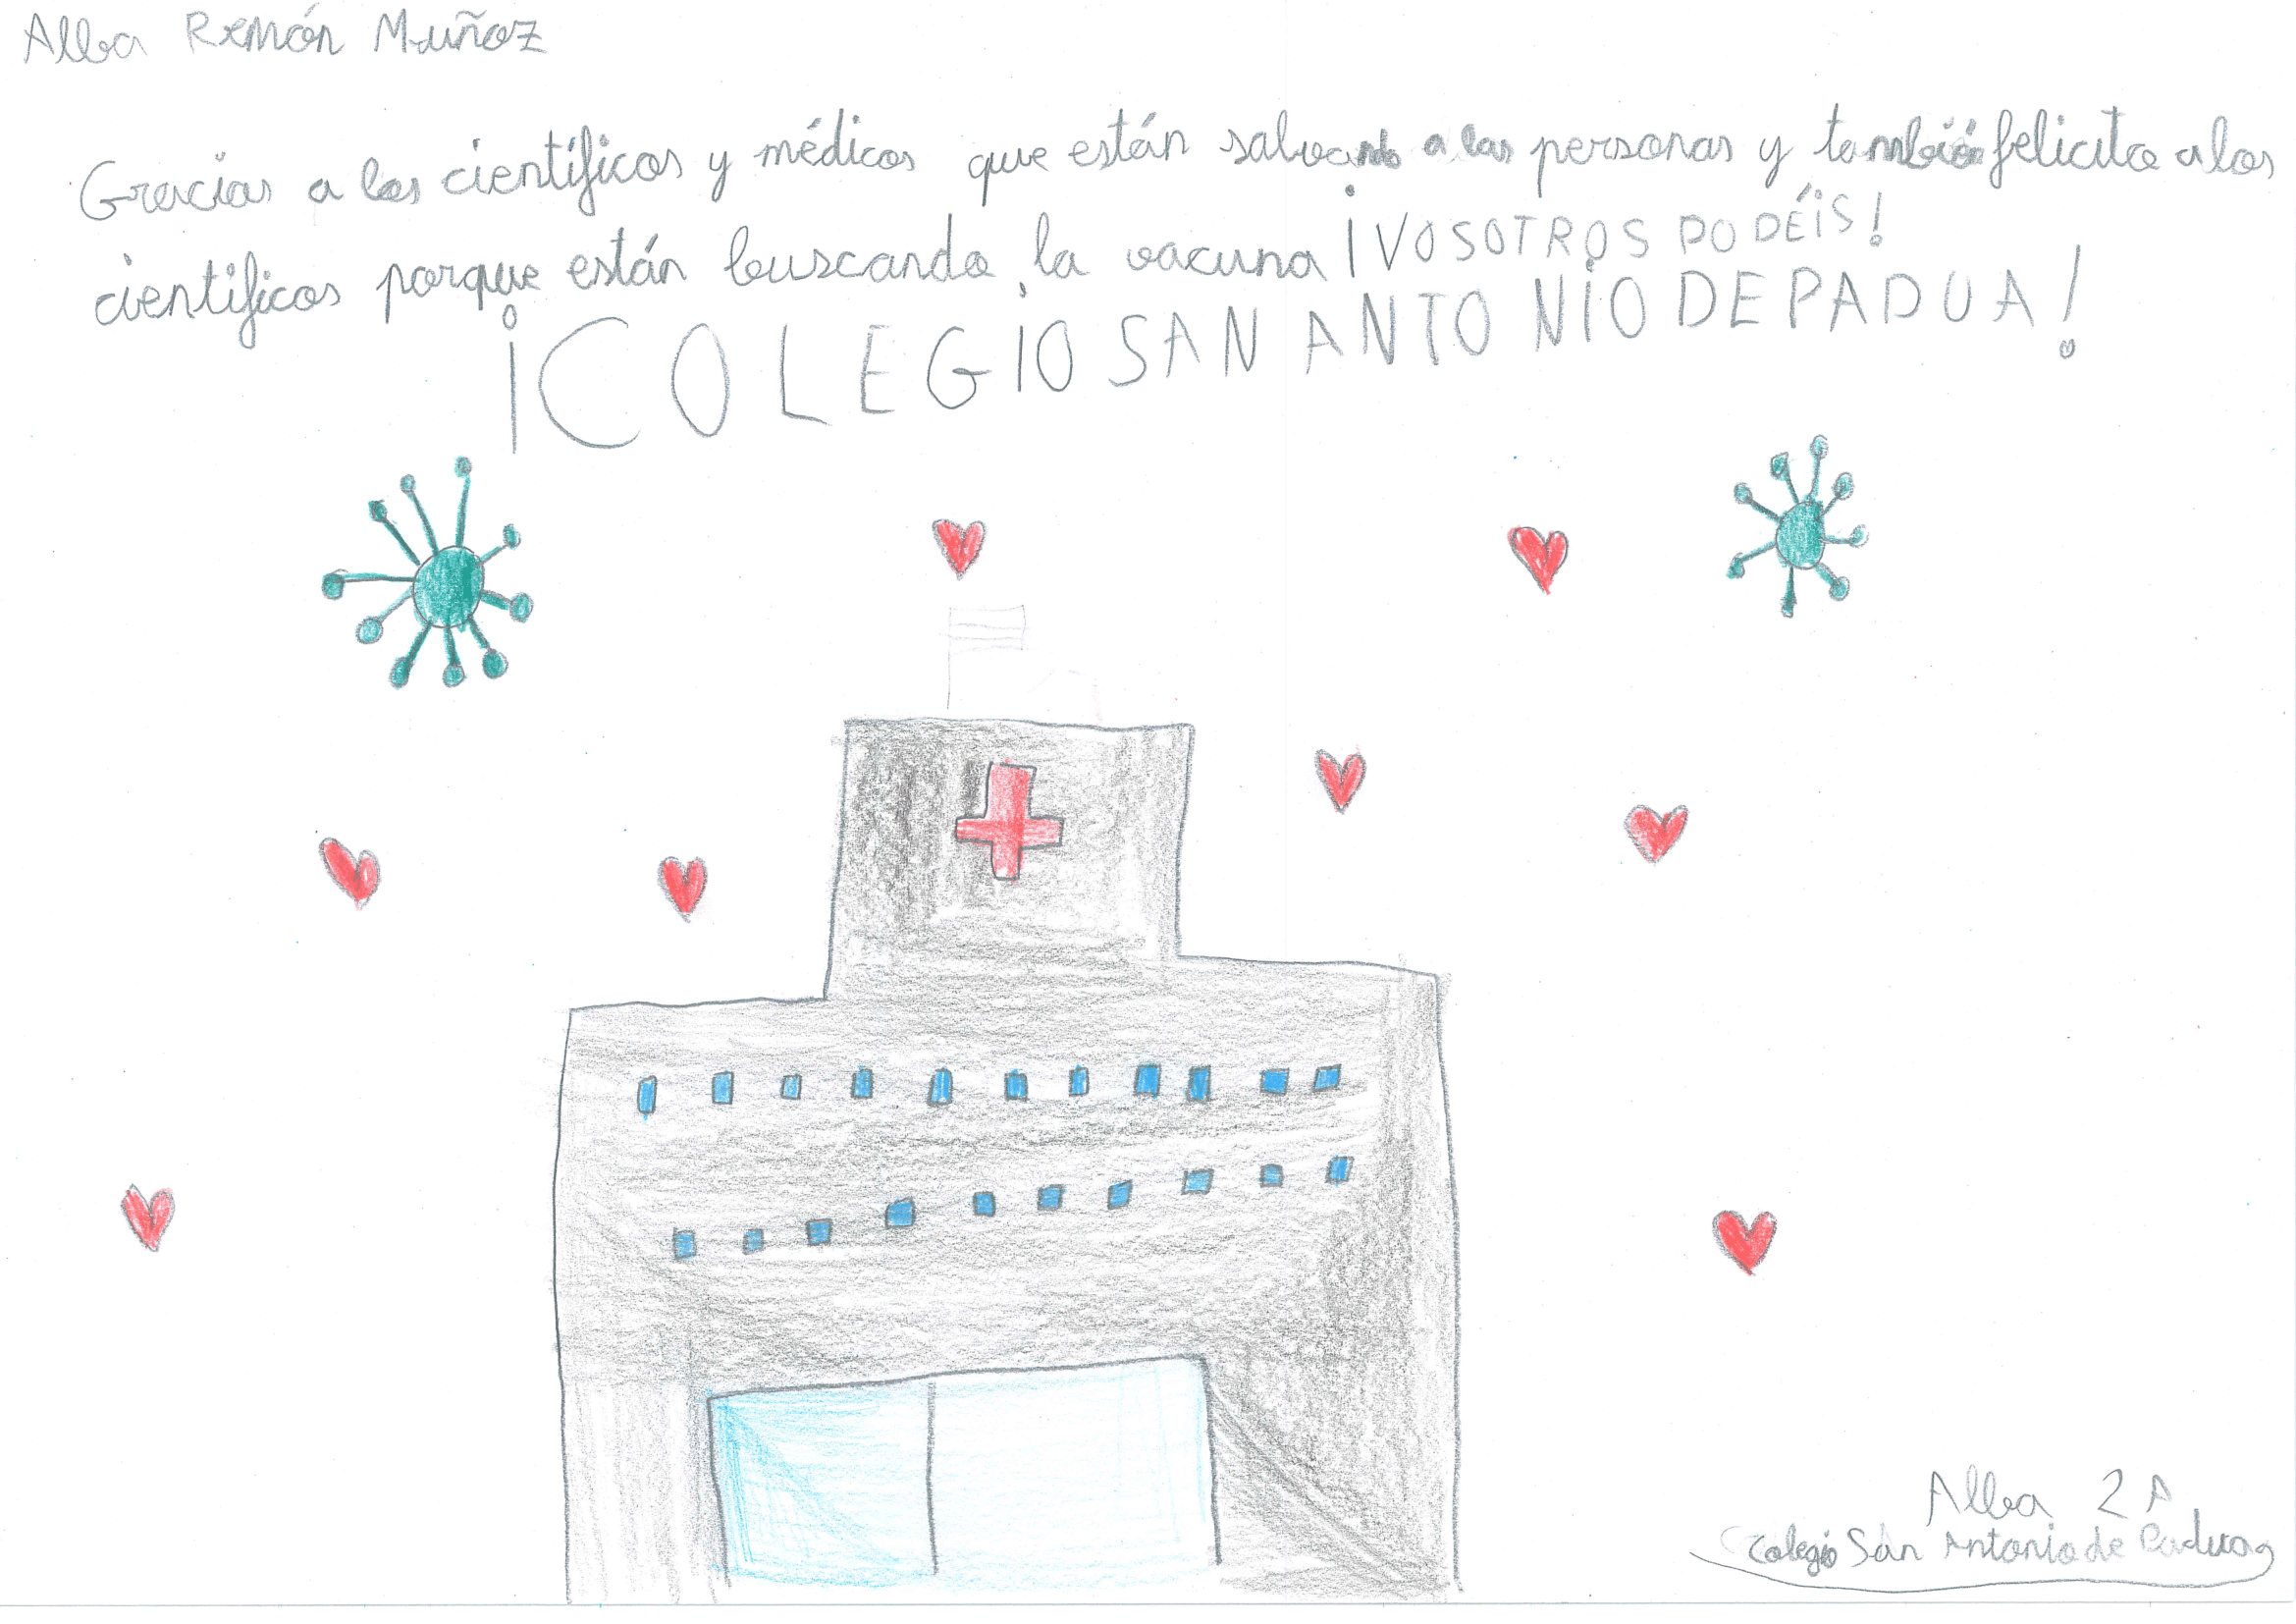 Alba Remón Muñoz
Gracias a los científicos y médicos que están salvando a las personas y también felicito a los
cientificos porque están buscando la vacuna ¡VOSOTROS PODÉIS!
¡COLEGIO SAN ANTONIO DE PADUA!
Alba 2 A
Colegio San Antonio de Padua